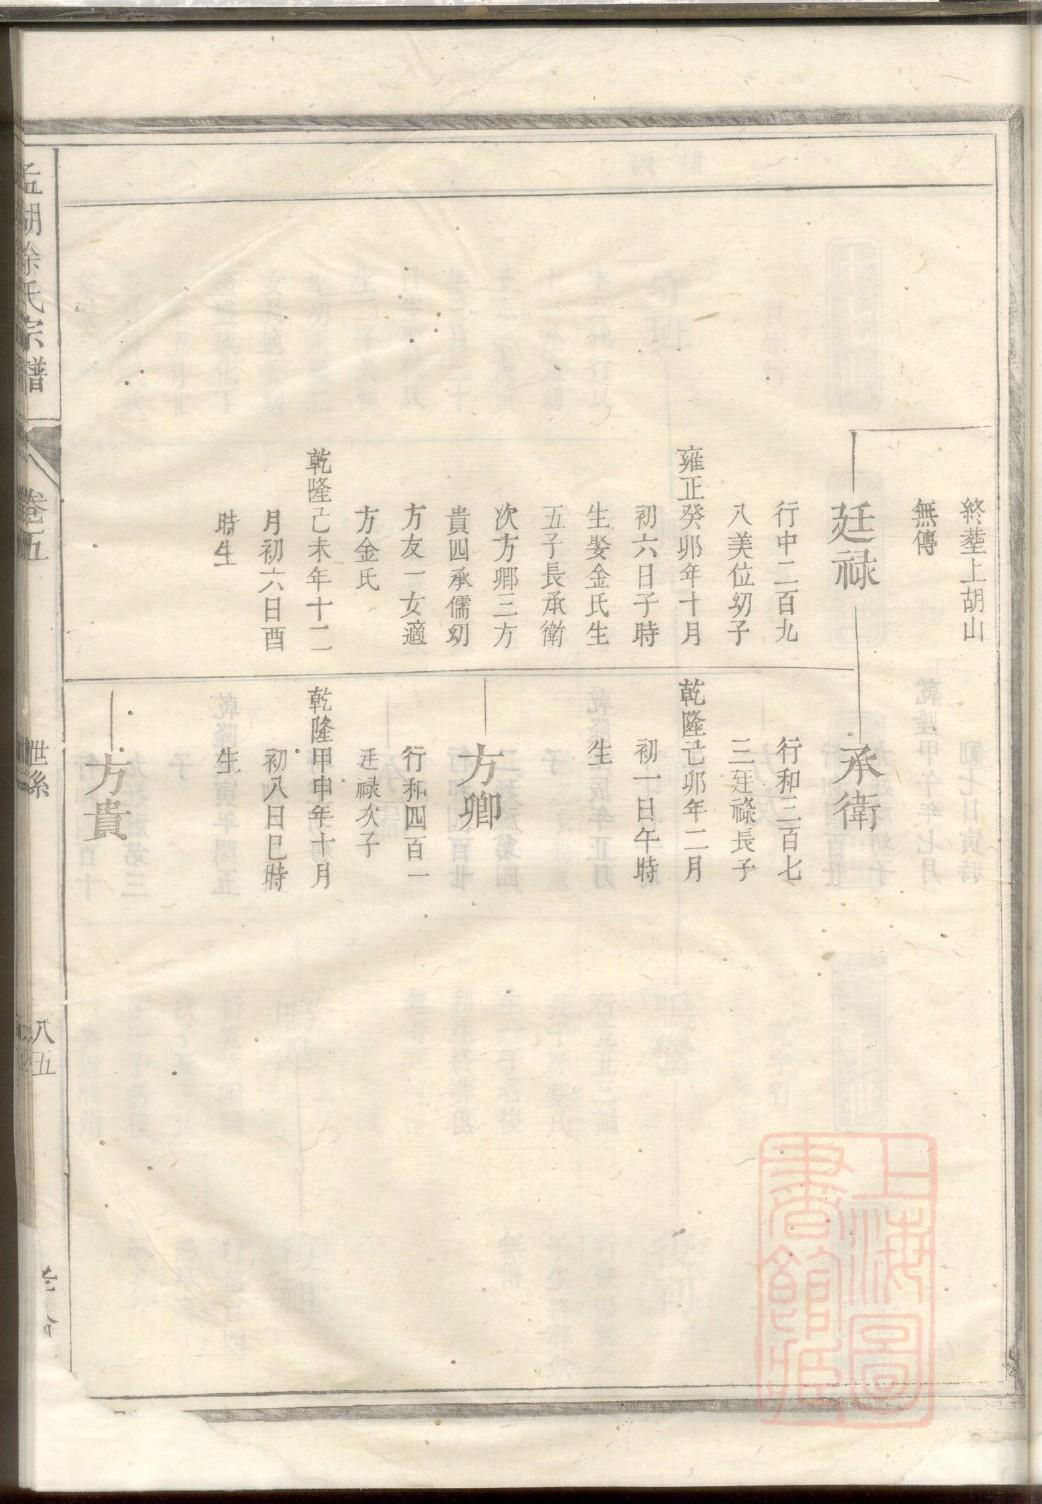 終塟上胡山
無傳
廷祿
行中二百九
八美位幼子
雍正癸卯年十月
初六日子時
生娶金氏生
五子長承衛
次方卿三方
貴四承儒幼
方友一女適
方金氏
乾隆己未年十二
月初六日酉
時生
承衛
行和三百七
三廷祿長子
乾隆己卯年二月
初一日午時
生
方卿
行和四百一
廷祿次子
乾隆甲申年十月
初八日巳時
生
方貴
孟湖徐氏宗譜
卷五
世系
八五
上海圖書館藏